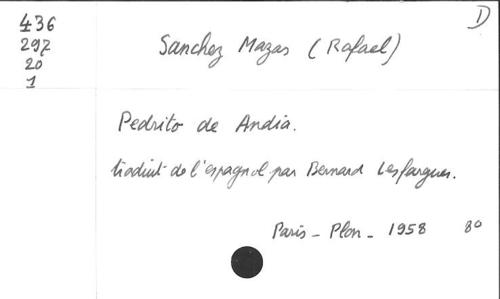 D
436
297
20
1
Sanchez Mazas (Rafael)
Pedrito de Andia.
traduit de l'espagnol par Bernard Lesfargues.
Paris - Plon - 1958 8º